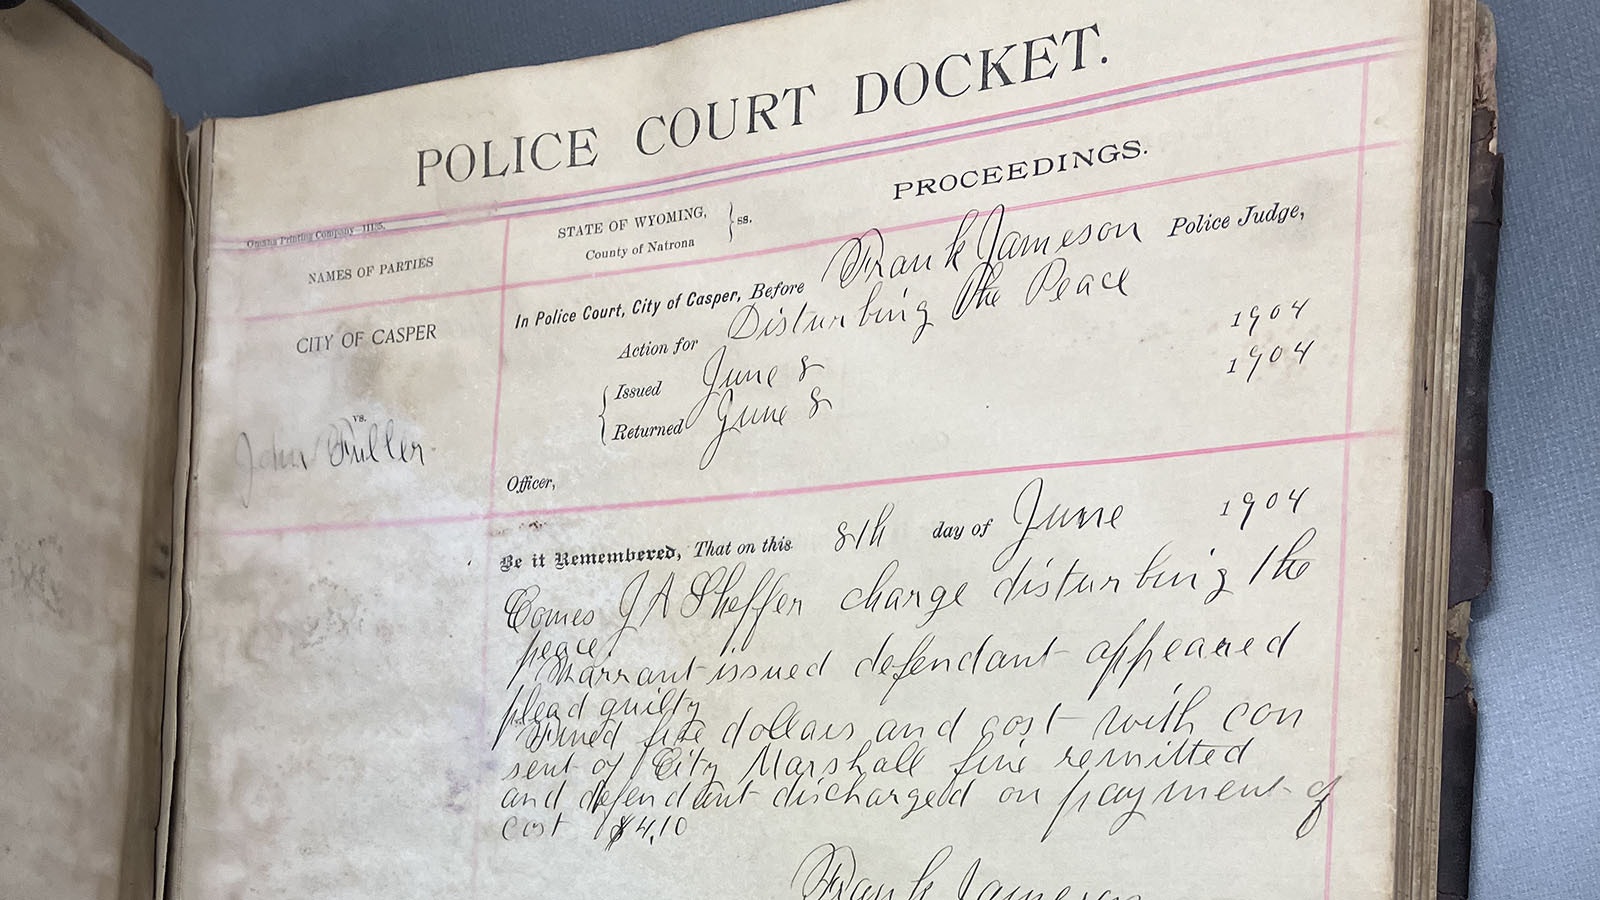 POLICE COURT DOCKET.
Omaha Printing Company
NAMES OF PARTIES
STATE OF WYOMING,
County of Natrona
} ss.
PROCEEDINGS.
CITY OF CASPER
vs.
John Fuller
In Police Court, City of Casper, Before Frank Jameson Police Judge,
Action for Disturbing the Peace
Issued June 8 1904
Returned June 8 1904
Officer,
Be it Remembered, That on this 8th day of June 1904
Comes J A Sheffer charge disturbing the
peace.
Warrant issued defendant appeared
plead guilty
Fined five dollars and cost with con
sent of City Marshall fine remitted
and defendant discharged on payment of
cost $4.10
Frank Jameson